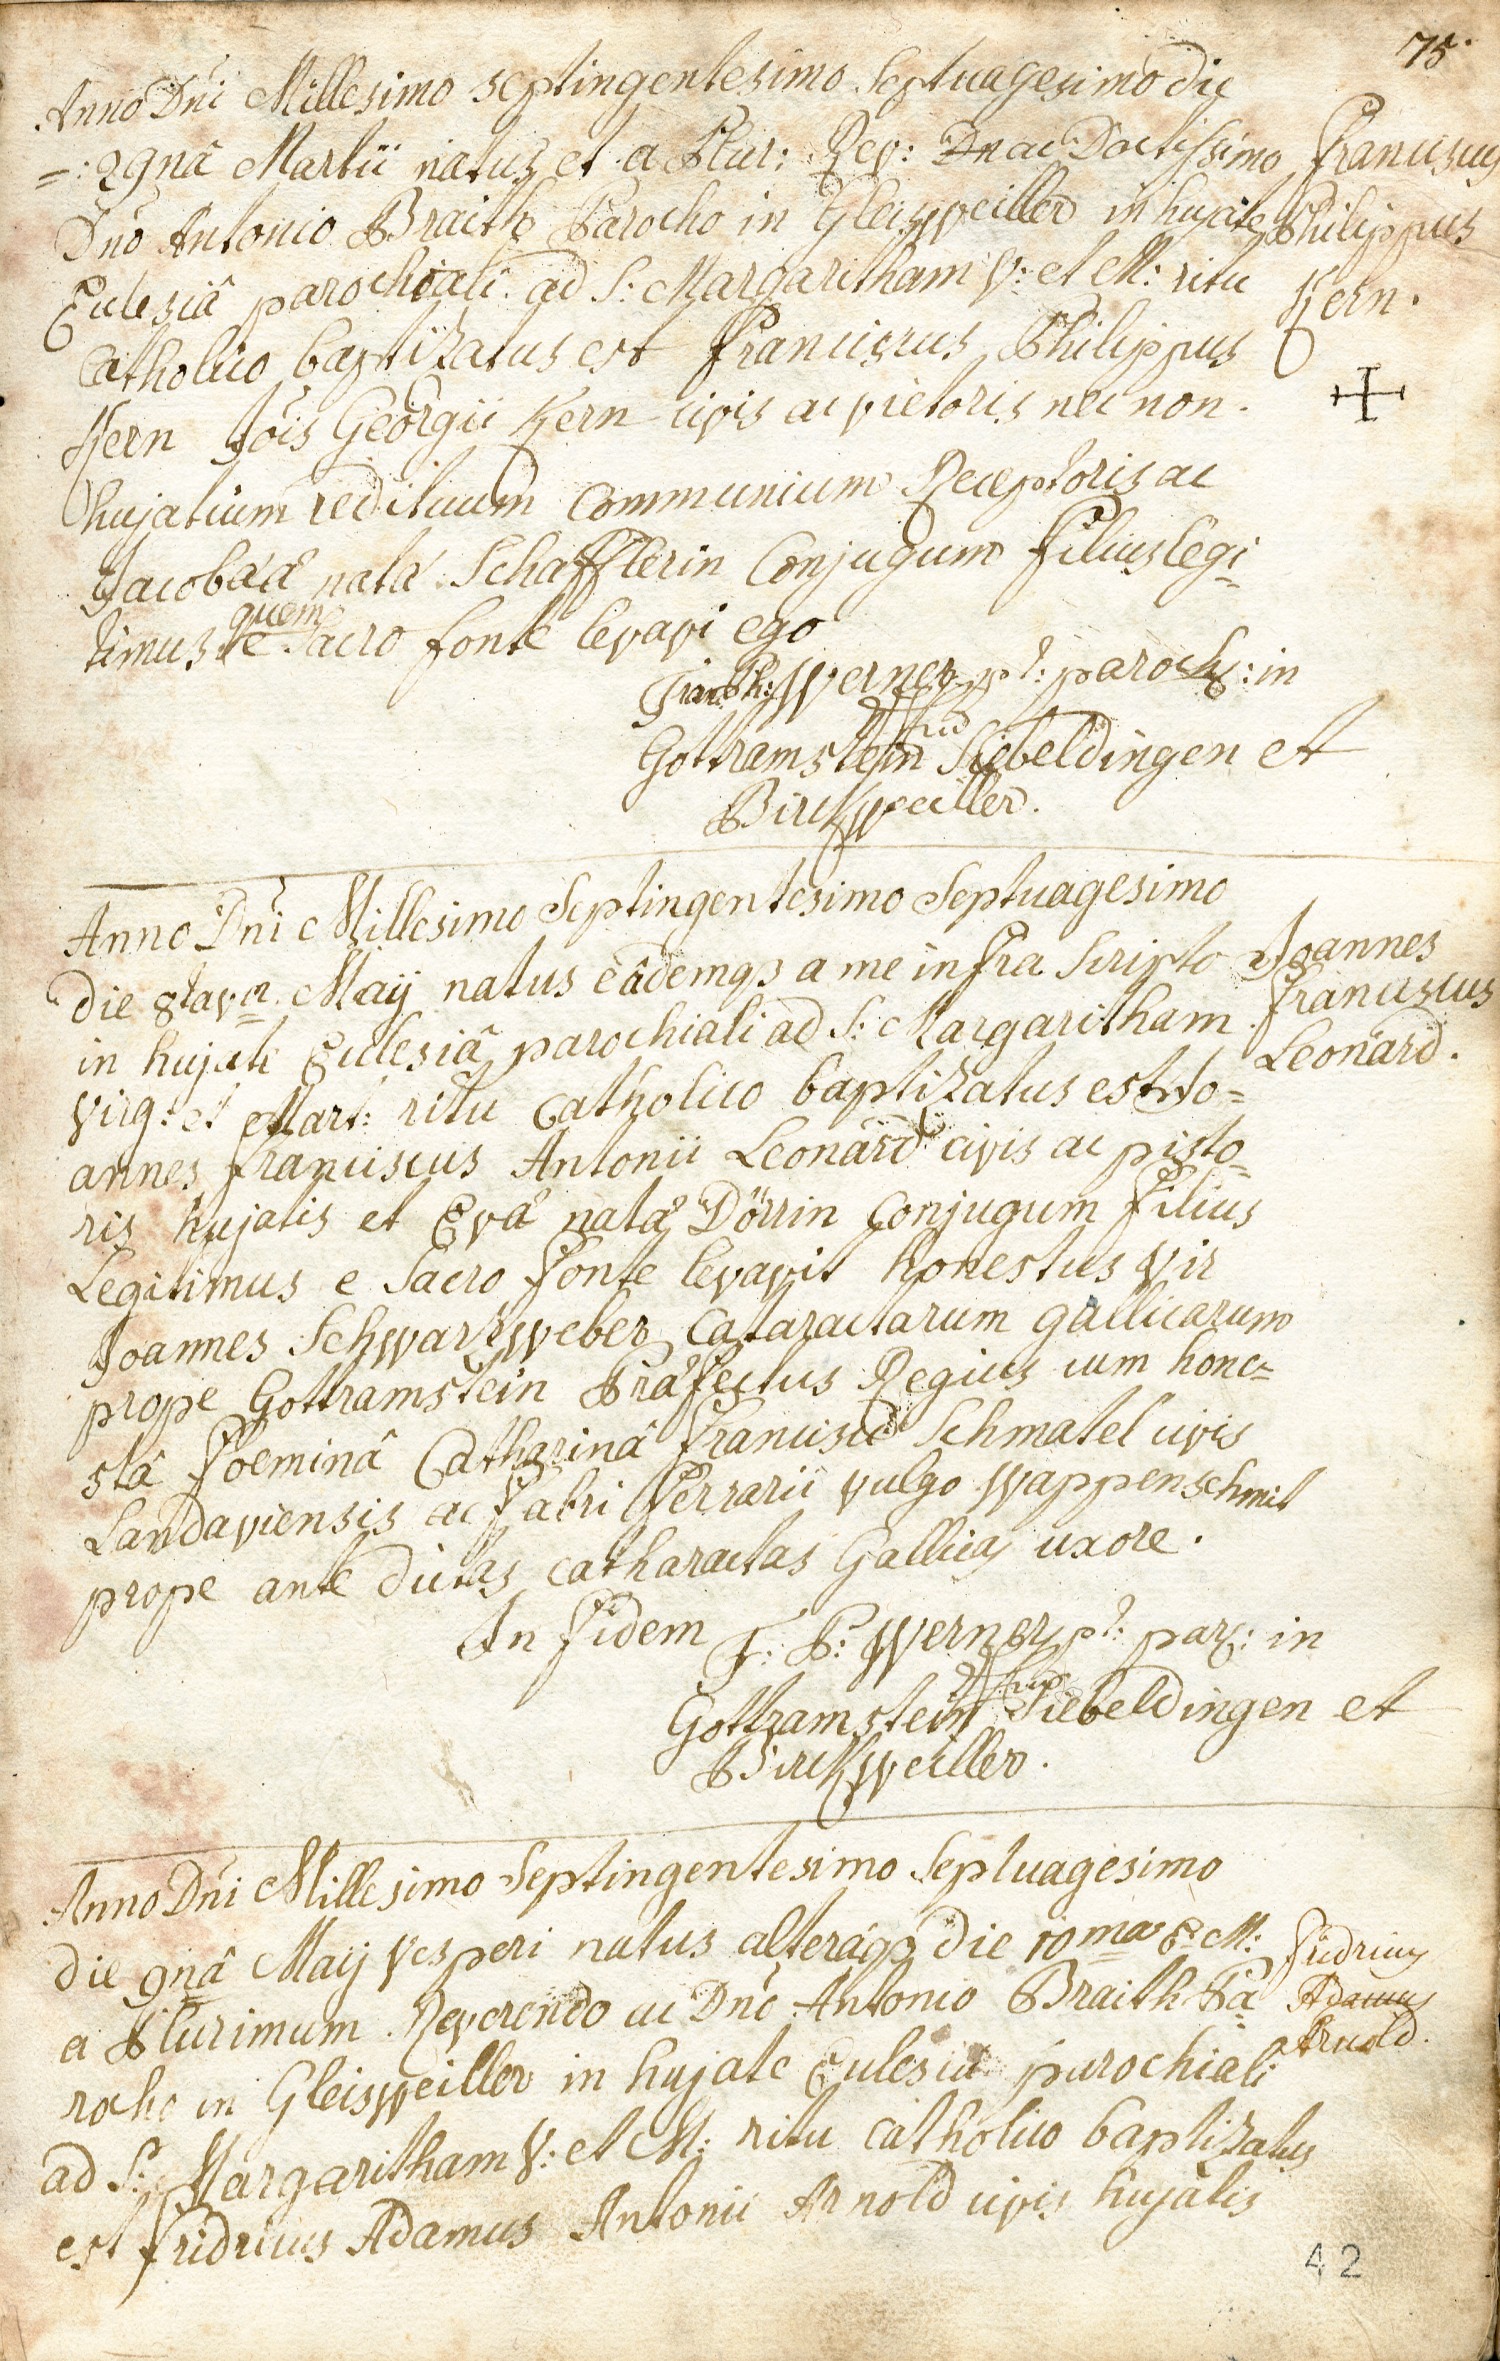 75.
Anno Dni Millesimo septingentesimo Septuagesimo die
=: 29nâ Martii natus et a Plur: Rev: Dn ac Doctissimo
Dno Antonio Braith Parocho in Gleisweiller in hujate
Ecclesiâ parochiali ad S: Margaritham V: et M: ritu
Catholico baptizatus est Franciscus Philippus
Kern Jois Georgii Kern civis ac vietoris nec non
hujatium redituum Communium Receptoris ac
Jacobaeâ natâ Schafflerin Conjugum Filius legi=
timus quem e Sacro fonte levavi ego
Werner pt: paroch: in
Gottramstein Siebeldingen et
Birckweiller.
Franciscus
Philippus
Kern.
Anno Dni Millesimo Septingentesimo Septuagesimo
die 8tava May natus eâdemqz a me infra Scripto
in hujate Ecclesiâ parochiali ad S: Margaritham
Virg: et Mart: ritu Catholico baptizatus est Jo=
annes Franciscus Antonii Leonard civis ac pisto=
ris hujatis et Evâ natâ Dörrin Conjugum Filius
Legitimus e Sacro Fonte levavit honestus Vir
Joannes Schwartzweber Cataractarum gallicarum
prope Gottramstein Praefectus Regius cum hone=
stâ Foeminâ Catharinâ Francisci Schmatel civis
Landaviensis ac Fabri Ferrarii vulgo Wappenschmit
prope ante dictas catharactas Gallicas uxore.
In Fidem F: P: Werner pt: par: in
Gottramstein Siebeldingen et
Birckweiller.
Joannes
Franciscus
Leonard.
Anno Dni Millesimo Septingentesimo Septuagesimo
die 9nâ May Vesperi natus alterâqz die 10ma M:
a Plurimum Reverendo ac Dno Antonio Braith Pa=
rocho in Gleisweiller in hujate Ecclesia parochiali
ad S: Margaritham V: et M: ritu Catholico baptizatus
est Fridricus Adamus Antonii Arnold civis hujatis
Fridricus
Adamus
Arnold.
42